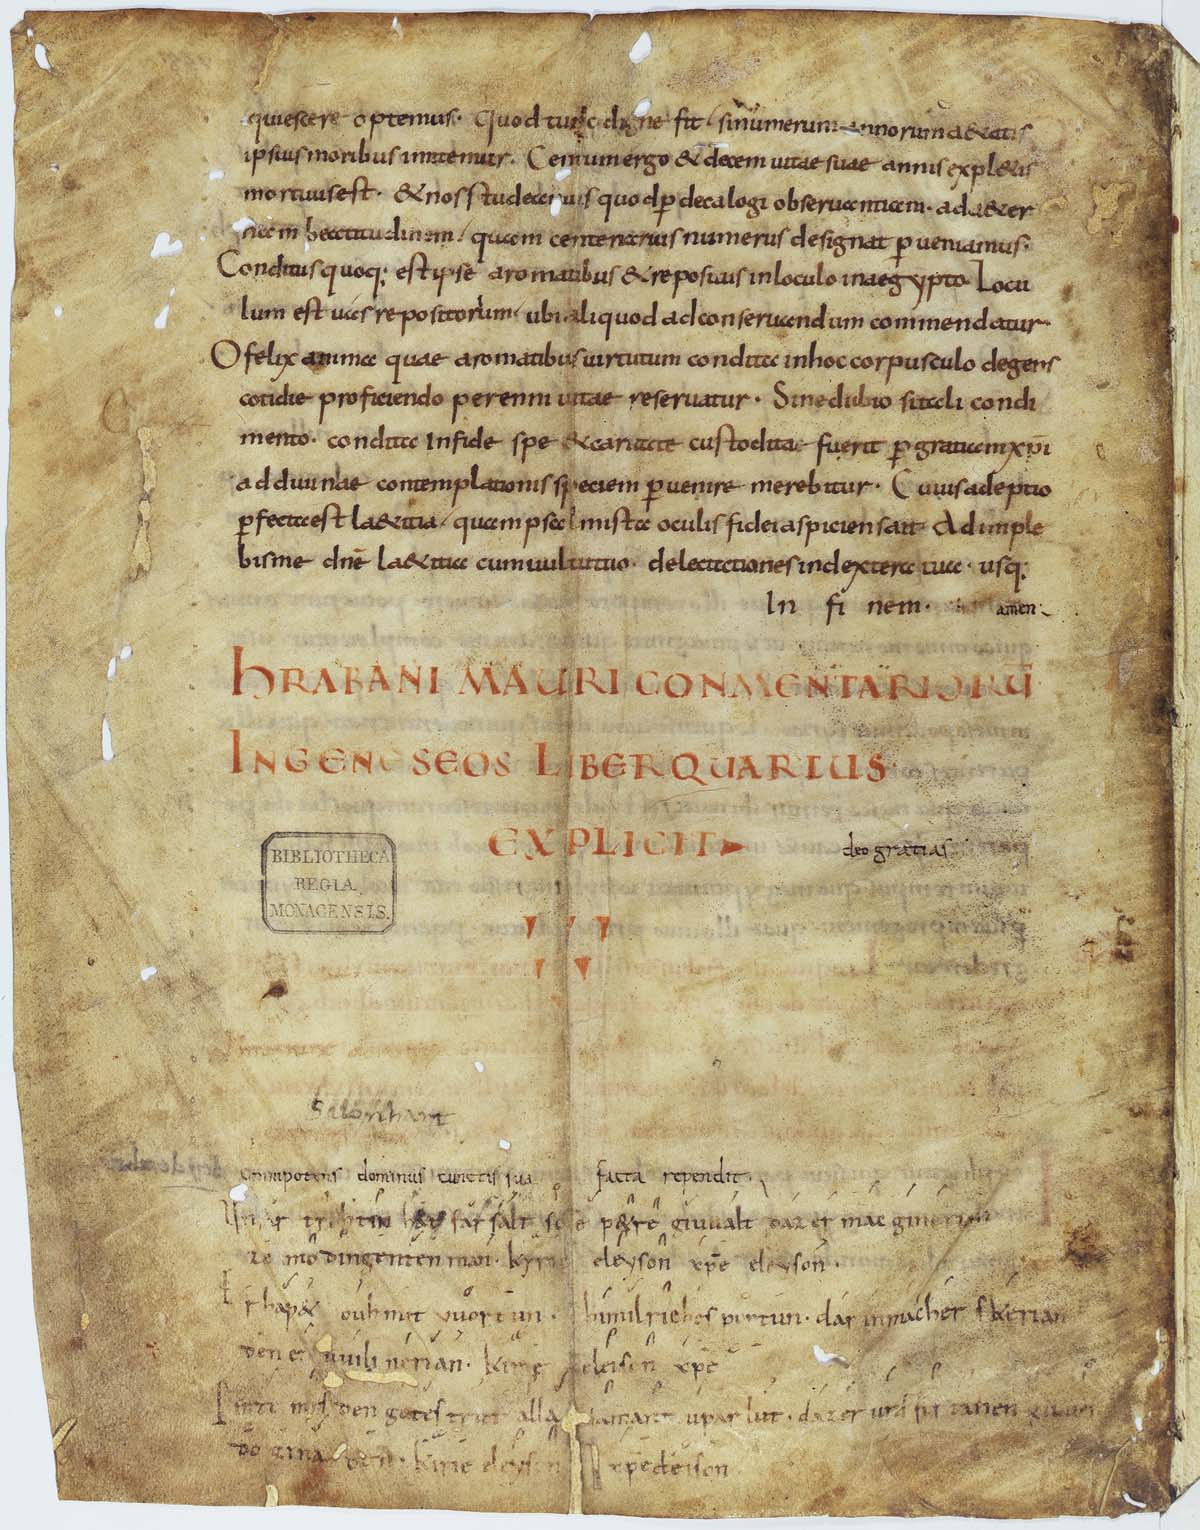 quiescere optemus. Quod tunc digne fit, si numerum annorum aetatis
ipsius moribus imitemur. Centum ergo & decem vitae suae annis expletis
mortuus est. & nos studeamus quod ꝑ decalogi observantiam. ad aeter
nam beatitudinem, quam centenarius numerus designat ꝑveniamus.
Conditus quoq; est ipse aromatibus & repositus in loculo in aegypto. Locu
lum est vas repositorium, ubi aliquod ad conservandum commendatur.
O felix anima quae aromatibus virtutum condita in hoc corpusculo degens
cotidie proficiendo perenni vitae reservatur. Sine dubio si tali condi
mento. condita in fide spe & caritate custodita fuerit ꝑ gratiam xp̄i
ad divinae contemplationis speciem ꝑvenire merebitur. Cuius adeptio
ꝑfecta est laetitia, quam psalmista oculis fidei aspiciens ait. Adimple
bis me dn̄e laetitia cum vultu tuo. delectationes in dextera tua. usq;
In finem. amen.
HRABANI MAURI CONMENTARIORŪ
IN GENESEOS LIBER QUARTUS
EXPLICIT
deo gratias
BIBLIOTHECA
REGIA
MONACENSIS.
omnipotens dominus cunctis sua facta rependit.
Unsar trohtin hat farsalt sancte petre giuualt daz er mac ginerian
ze imo dingenten man. kyrie eleyson xpē eleyson.
Er hapet ouh mit vuortun. himilriches portun. dar in mach er skerian
den er uuili nerian. kirie eleison xpē
Pittemes den gotes trut alla samant upar lut. daz er uns firtanen giuuer
do ginaden. kirie eleyson xpē eleison